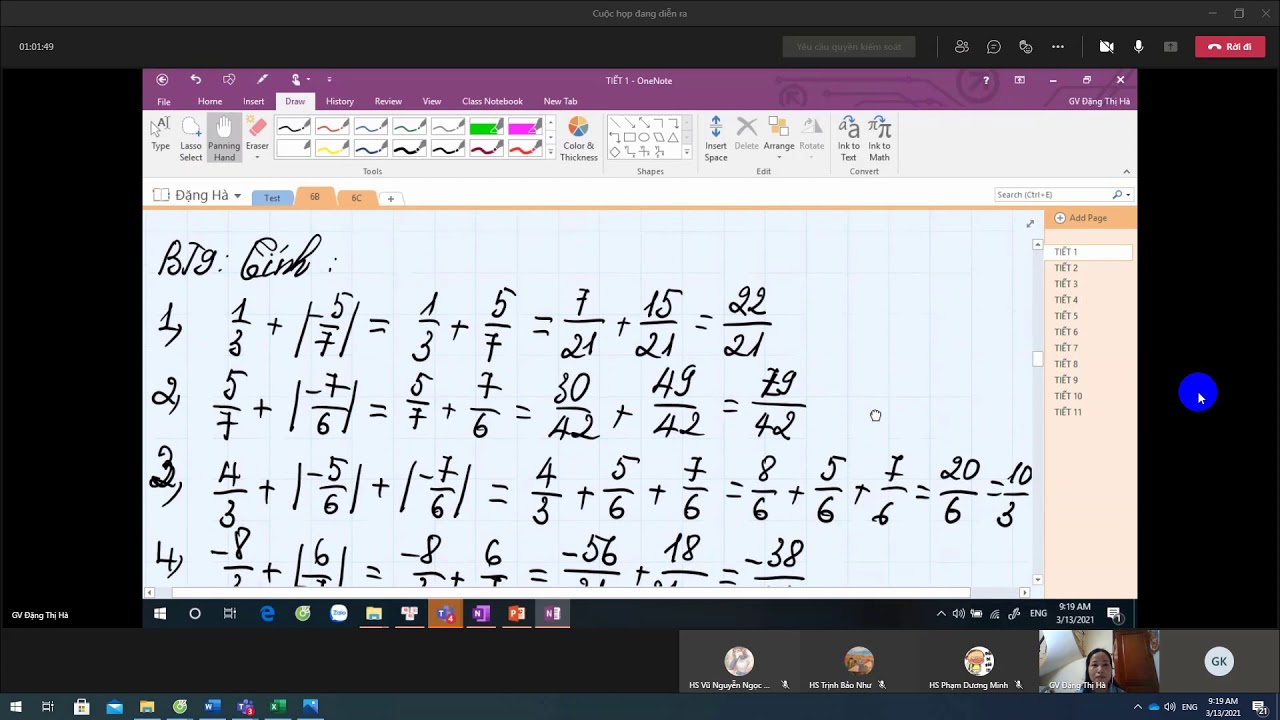 Cuộc họp đang diễn ra
01:01:49
Yêu cầu quyền kiểm soát
Rời đi
TIẾT 1 - OneNote
File Home Insert Draw History Review View Class Notebook New Tab
GV Đặng Thị Hà
Type
Lasso Select
Panning Hand
Eraser
Color & Thickness
Insert Space
Delete
Arrange
Rotate
Ink to Text
Ink to Math
Tools
Shapes
Edit
Convert
Đặng Hà
Test
6B
6C
Search (Ctrl+E)
Add Page
TIẾT 1
TIẾT 2
TIẾT 3
TIẾT 4
TIẾT 5
TIẾT 6
TIẾT 7
TIẾT 8
TIẾT 9
TIẾT 10
TIẾT 11
BT9: Tính :
1, 1/3 + |-5/7| = 1/3 + 5/7 = 7/21 + 15/21 = 22/21
2, 5/7 + |-7/6| = 5/7 + 7/6 = 30/42 + 49/42 = 79/42
3, 4/3 + |-5/6| + |-7/6| = 4/3 + 5/6 + 7/6 = 8/6 + 5/6 + 7/6 = 20/6 = 10/3
4, -8 + |6| = -8 + 6 = -56 + 18 = -38
GV Đặng Thị Hà
Zalo
4
ENG
9:19 AM
3/13/2021
1
HS Vũ Nguyễn Ngọc ...
HS Trịnh Bảo Như
HS Phạm Dương Minh
GV Đặng Thị Hà
GK
3
ENG
9:19 AM
3/13/2021
21